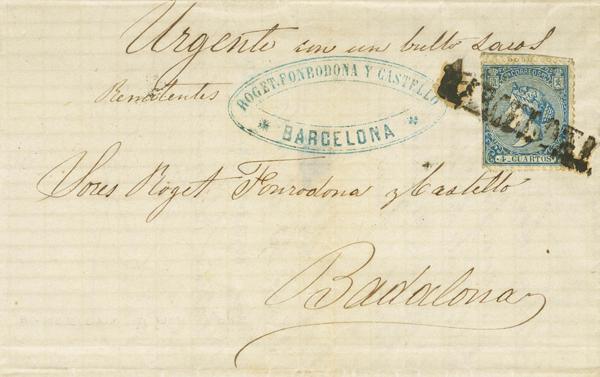 Urgente con un bulto sacos
Remitentes
ROGET, FONRODONA Y CASTELLO
* BARCELONA *
CORREOS
4 CUARTOS
Sres Roget Fonrodona y Castello
Badalona